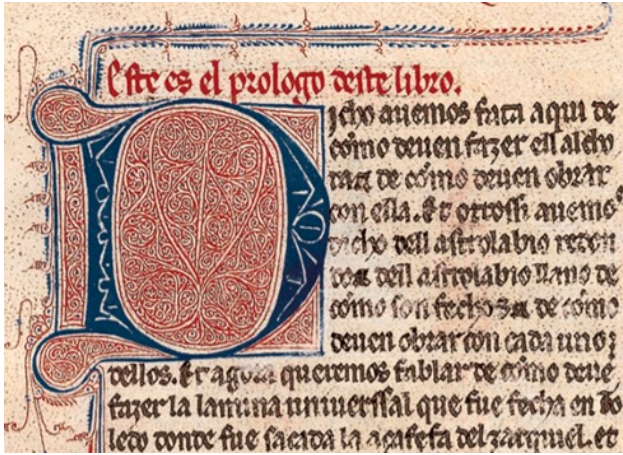 Este es el prologo deste libro.
Dicho auemos fata aqui de
como deuen fazer ell alcho
rat ⁊ de como deuen obrar
con ella. Et otrossi auemos
dicho dell astrolabio redon
do ⁊ dell astrolabio llano de
como son fechos ⁊ de como
deuen obrar con cada uno
dellos. Et agora queremos fablar de como deue
fazer la lamina uniuerssal que fue fecha en To
ledo donde fue sacada la açafefa del zarquiel. et